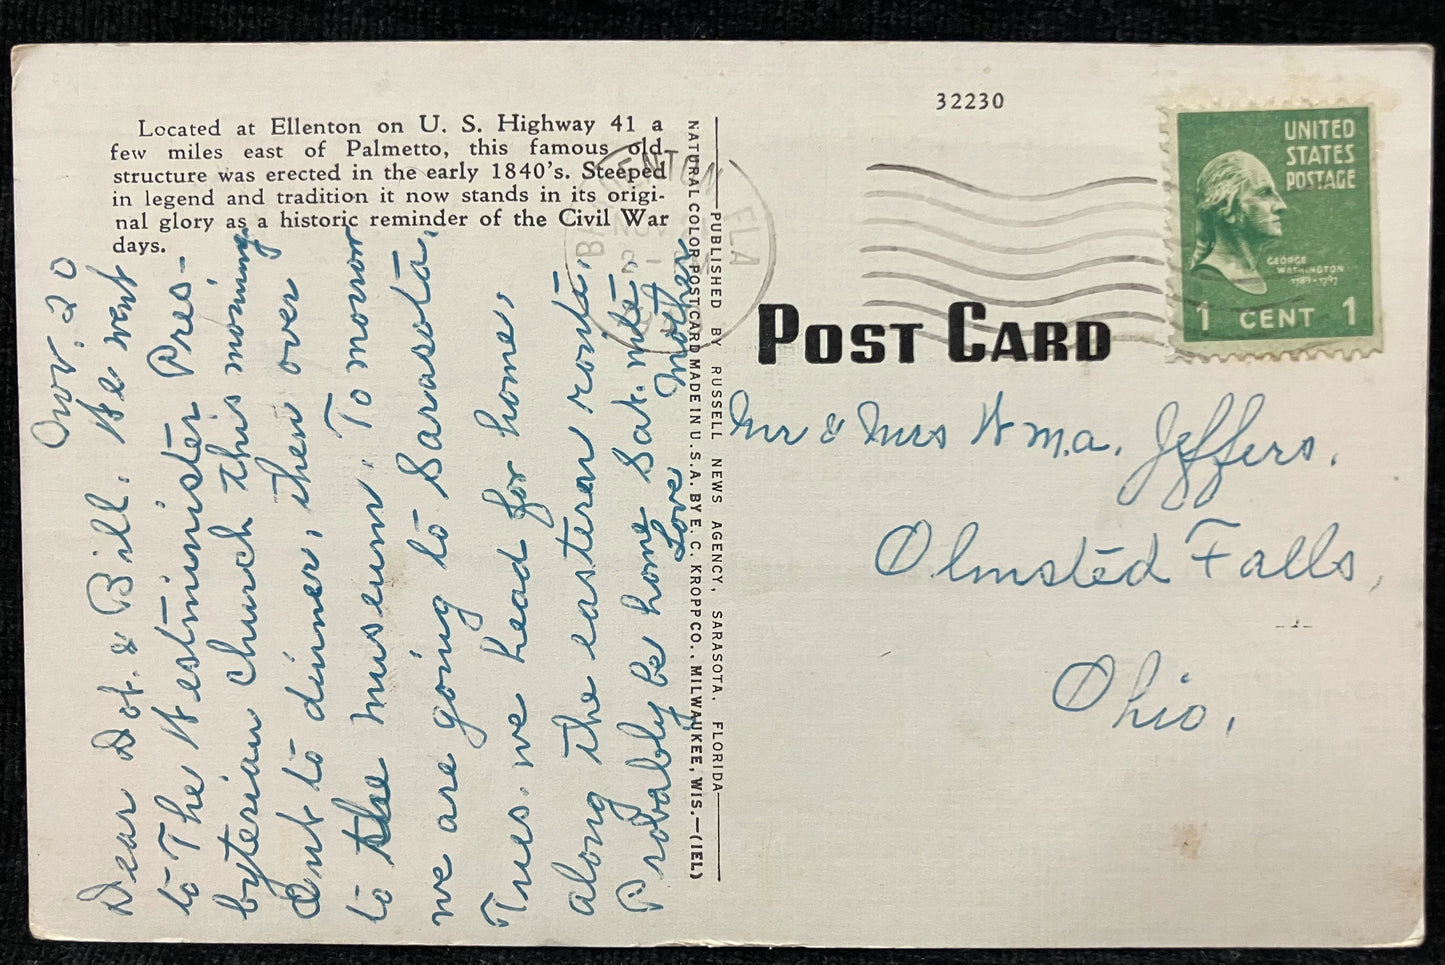 32230
Located at Ellenton on U. S. Highway 41 a
few miles east of Palmetto, this famous old
structure was erected in the early 1840's. Steeped
in legend and tradition it now stands in its origi-
nal glory as a historic reminder of the Civil War
days.
Nov. 20
Dear Dot. & Bill. We went
to The Westminister Pres-
byterian church this morning
Out to dinner, then over
to the museum. Tomorrow
we are going to Sarasota,
Tues. we head for home,
along the eastern route.
Probably be home Sat. nite.
Love Mother
NATURAL COLOR POST CARD MADE IN U. S. A. BY E. C. KROPP CO., MILWAUKEE, WIS.—(IEL)
PUBLISHED BY RUSSELL NEWS AGENCY, SARASOTA, FLORIDA
BRADENTON FLA
NOV
POST CARD
UNITED
STATES
POSTAGE
GEORGE
WASHINGTON
1789-1797
1 CENT 1
Mr & Mrs Wm.a. Jeffers.
Olmsted Falls,
Ohio.